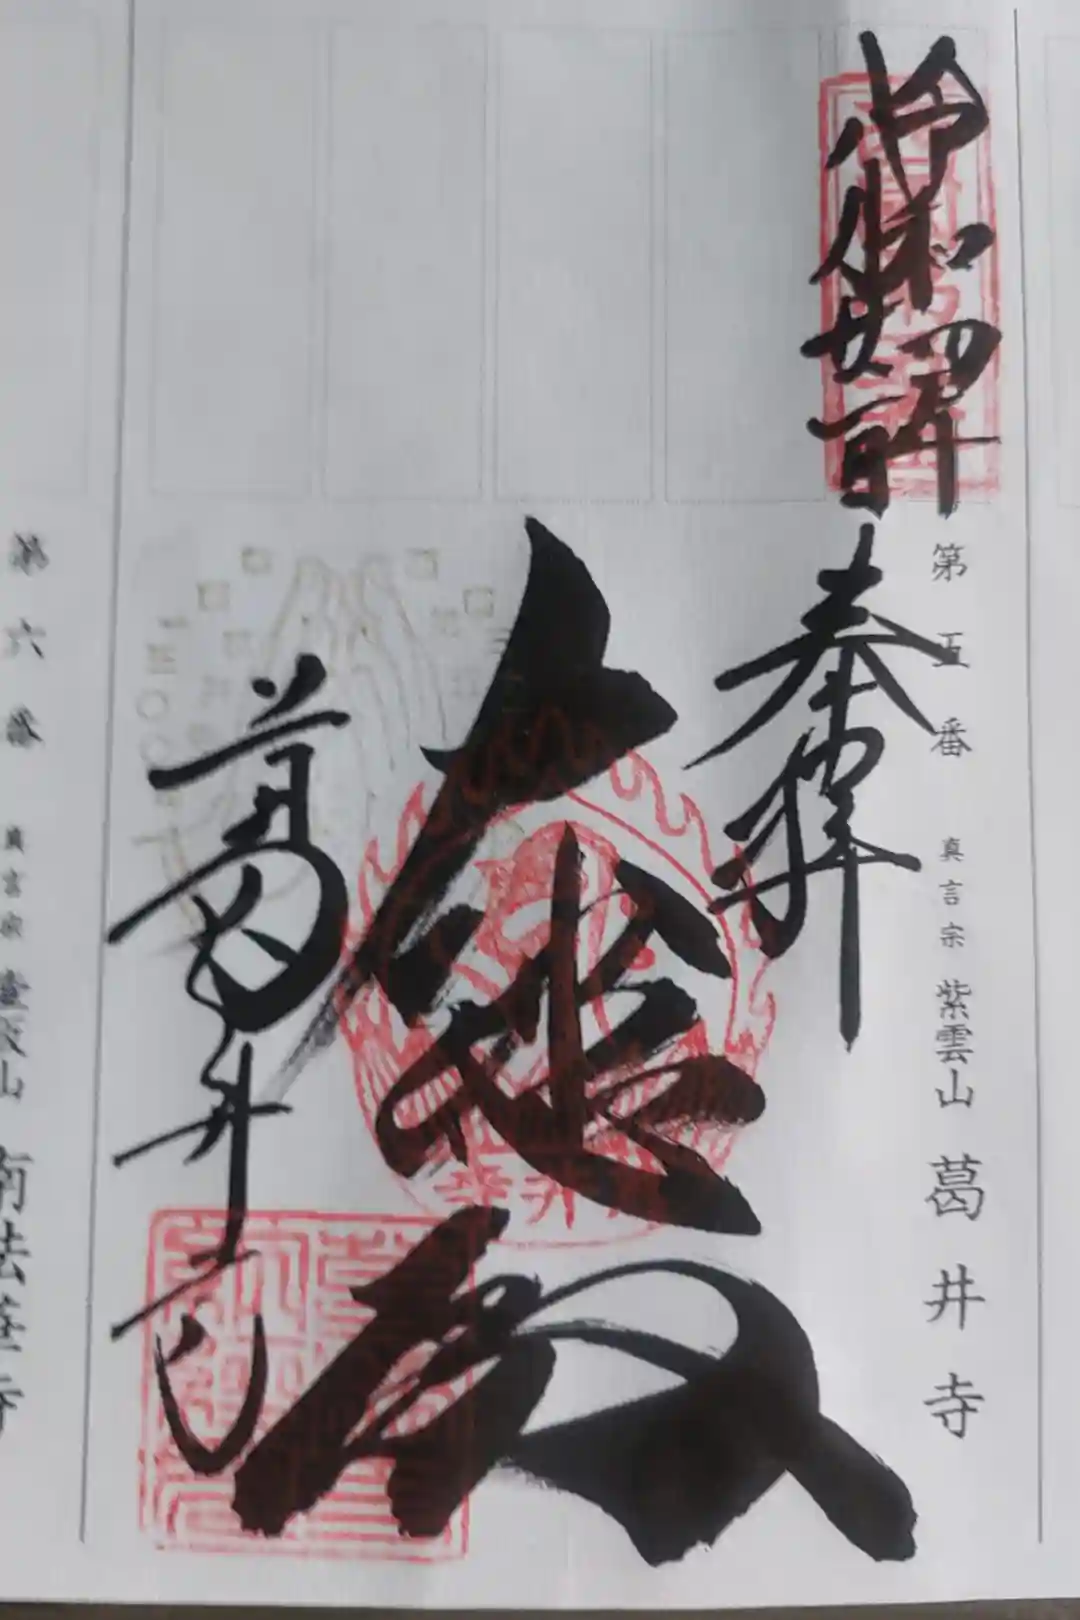 第五番 真言宗 紫雲山 葛井寺
令和四年
奉拝
大悲殿
葛井寺
第六番 真言宗 壷阪山 南法華寺